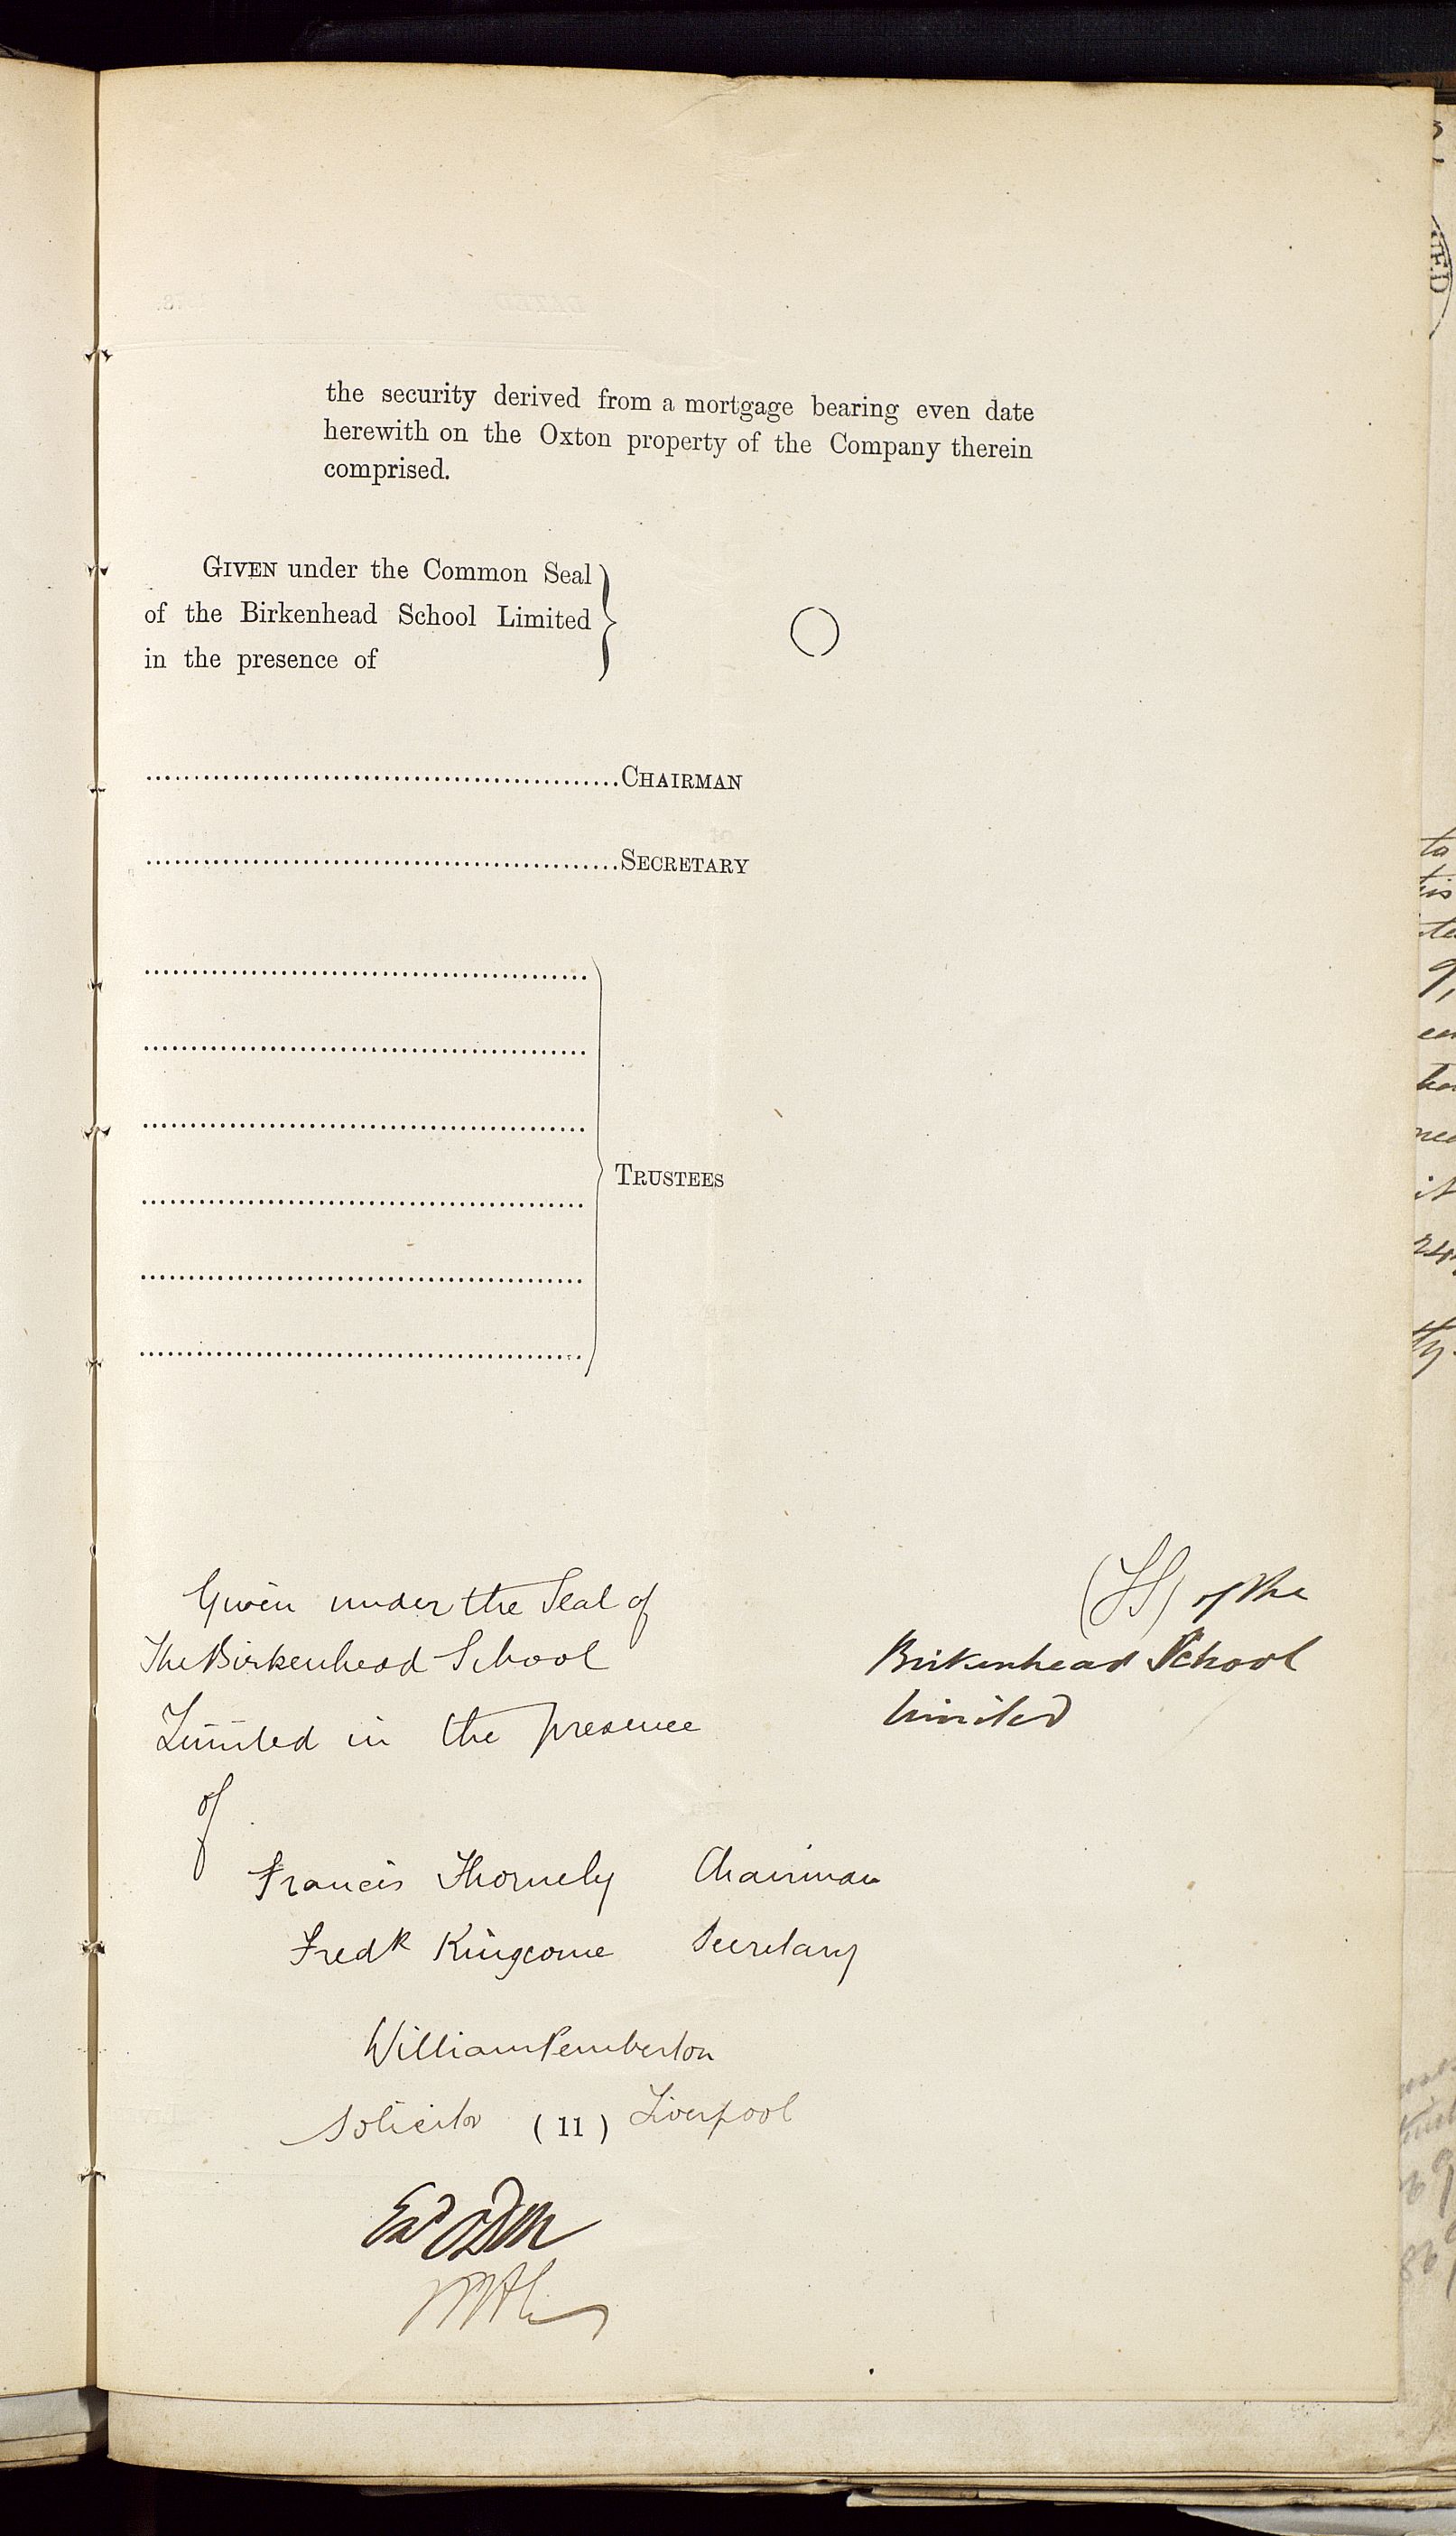 the security derived from a mortgage bearing even date
herewith on the Oxton property of the Company therein
comprised.
GIVEN under the Common Seal
of the Birkenhead School Limited
in the presence of
CHAIRMAN
SECRETARY
TRUSTEES
Given under the Seal of
The Birkenhead School
Limited in the presence
of
(LS) of the
Birkenhead School
Limited
Francis Thornely Chairman
Fredk Kingcome Secretary
William Pemberton
Solicitor (11) Liverpool